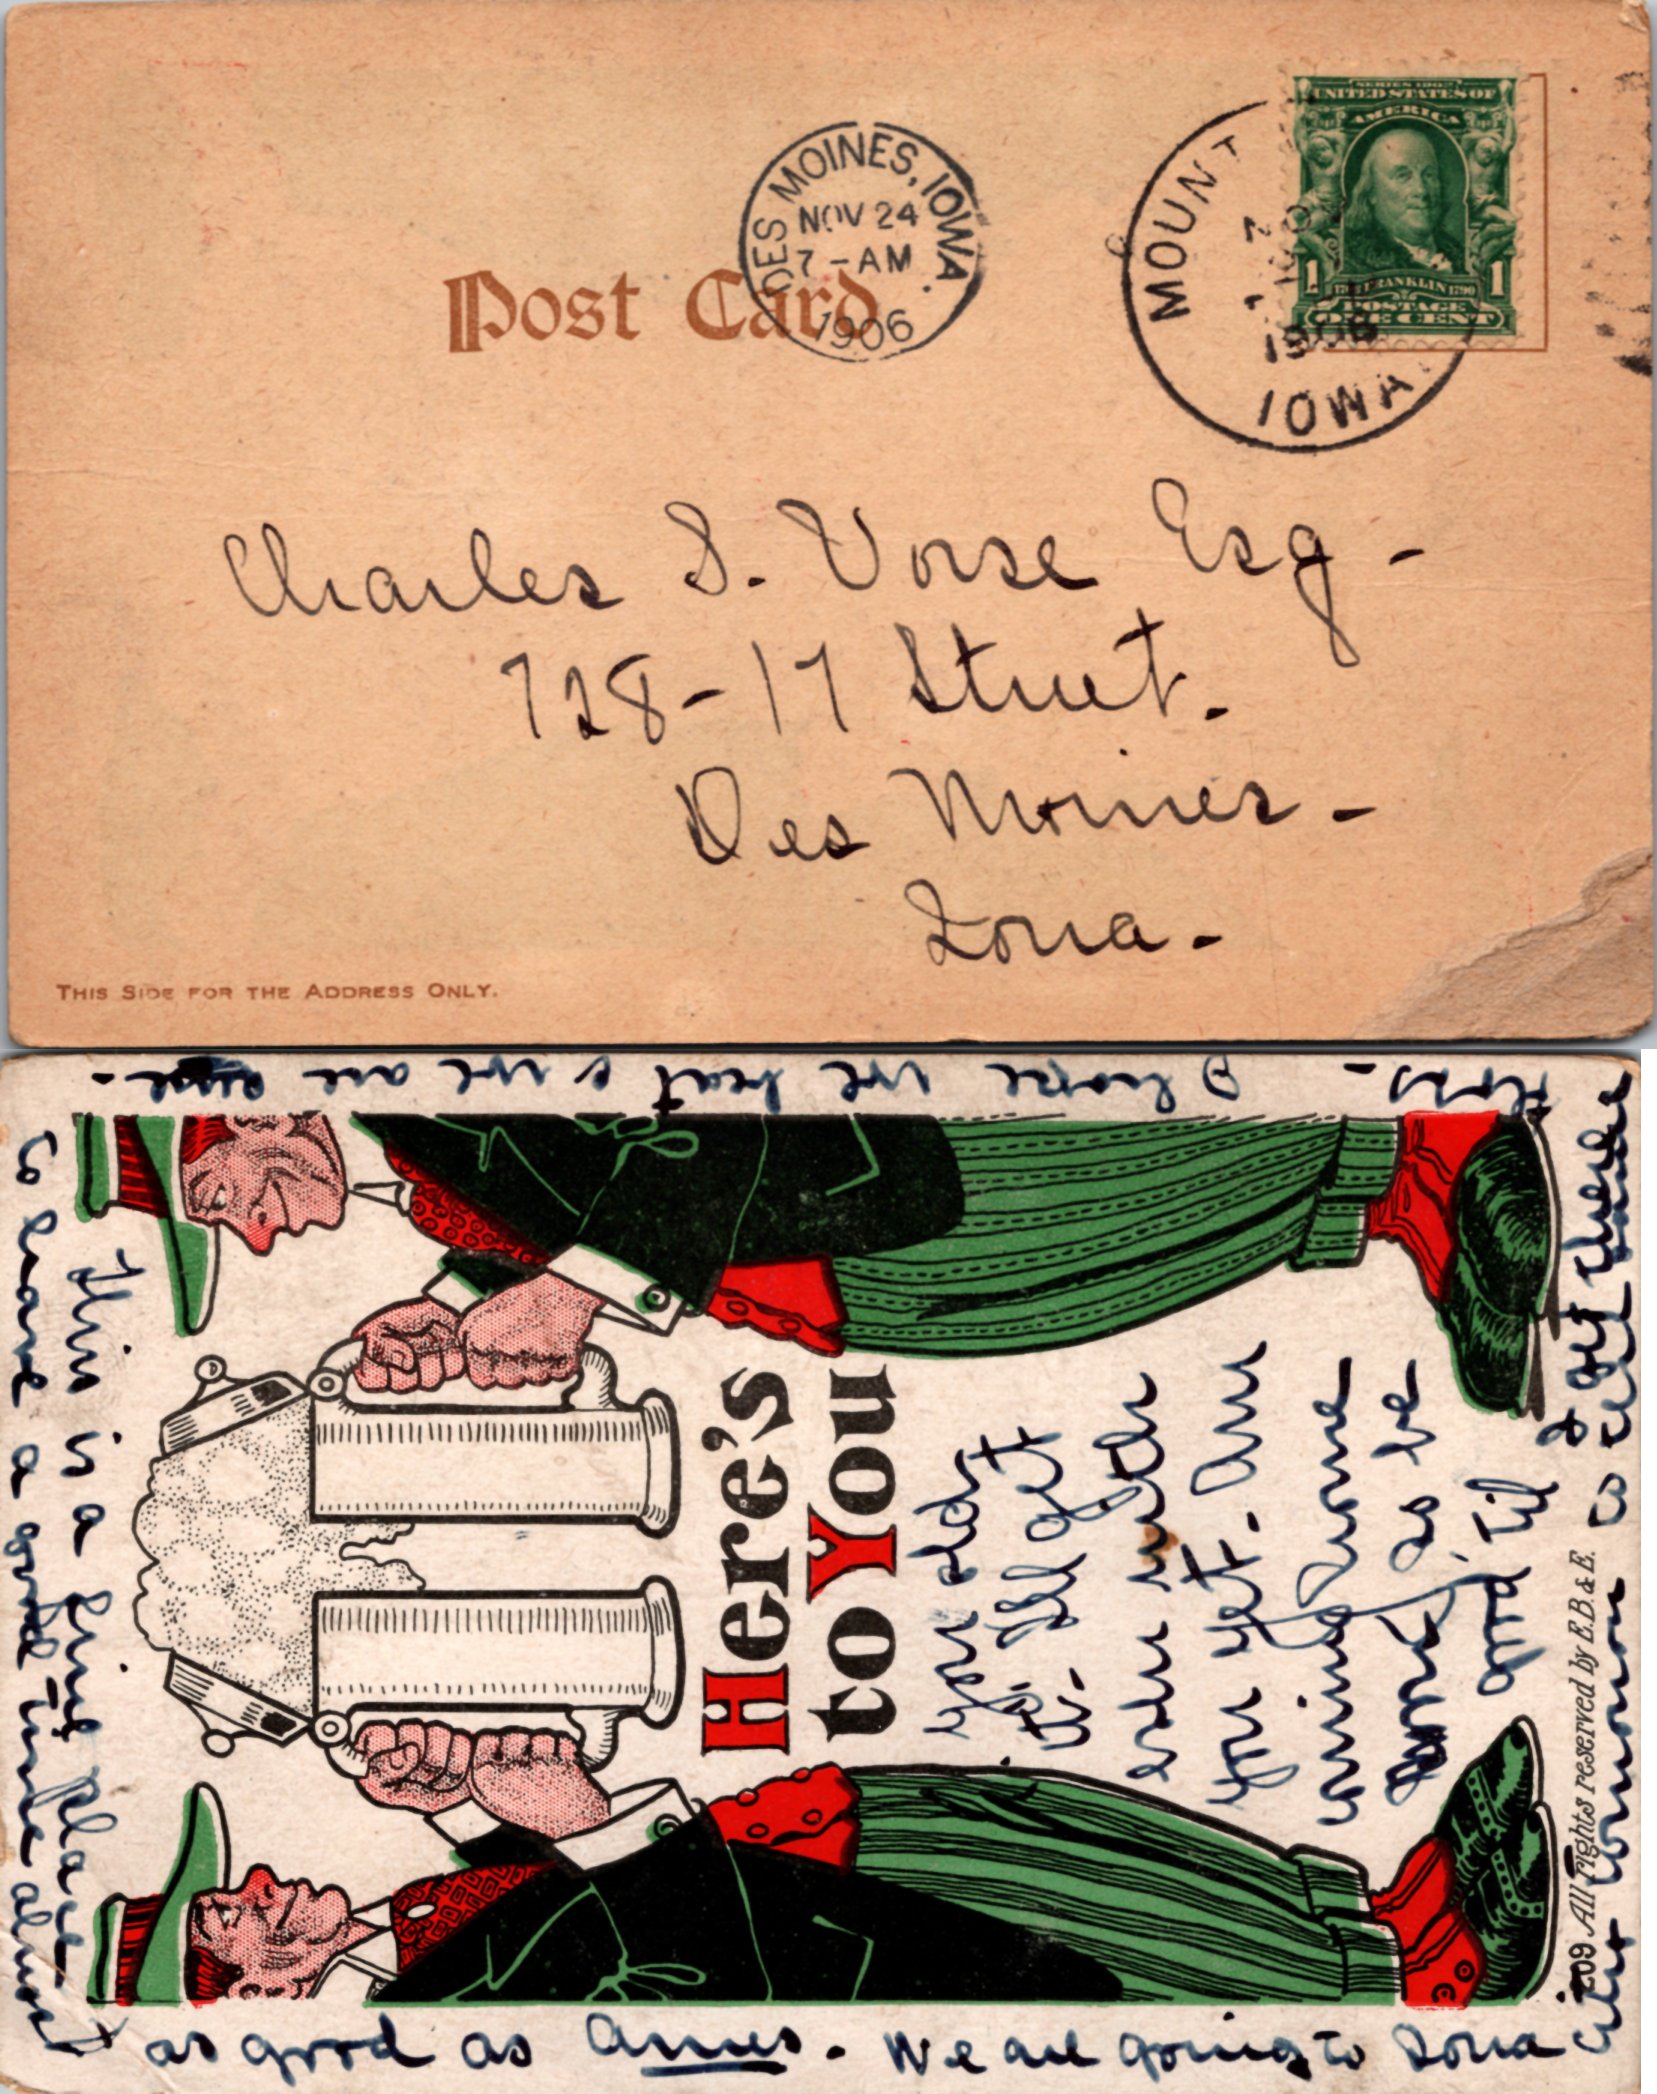 SERIES 1902
UNITED STATES OF
AMERICA
1 1
FRANKLIN 1790
POSTAGE
ONE CENT
MOUNT
1906
IOWA.
DES MOINES, IOWA.
NOV 24
7-AM
1906
Post Card
Charles S. Vorse Esq-
728-17 Street.
Des Moines-
Iowa-
THIS SIDE FOR THE ADDRESS ONLY.
Here's
to You
I'll get
even with
you yet.
as be
good 'til
I get there
This is a fine place
to have a good time almost
as good as Ames. We are going to Iowa
City tomorrow to
I hope we beat & we are
209 All rights reserved by E.B.&E.